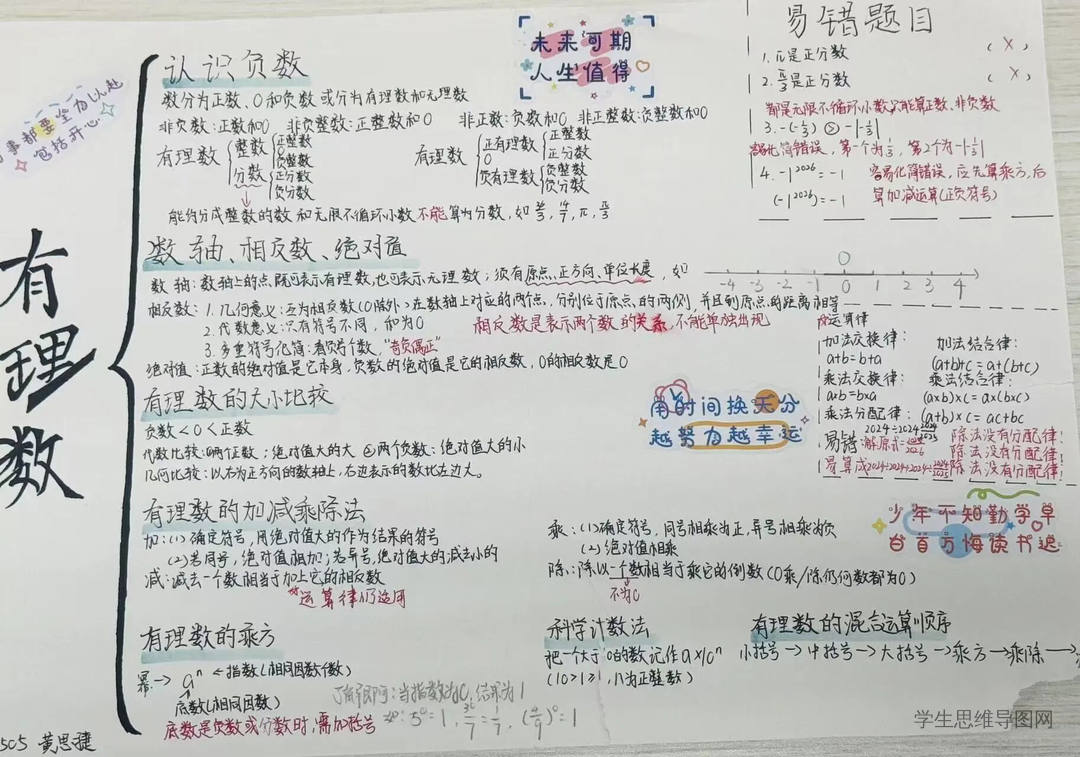 有理数
认识负数
数分为正数、0和负数 或分为有理数和无理数
非负数:正数和0 非负整数:正整数和0 非正数:负数和0 非正整数:负整数和0
有理数 整数 正整数 0 负整数 分数 正分数 负分数
有理数 正有理数 正整数 正分数 0 负有理数 负整数 负分数
数轴、相反数、绝对值
数轴:数轴上的点既可表示有理数,也可表示无理数;须有原点、正方向、单位长度,如
-4 -3 -2 -1 0 1 2 3 4
0
相反数:1.几何意义:互为相反数(0除外)在数轴上对应的两个点,分别位于原点的两侧,并且到原点的距离相等
2.代数意义:只有符号不同,和为0
相反数是表示两个数的关系,不能单独出现
3.多重符号化简:看负号个数,"奇负偶正"
绝对值:正数的绝对值是它本身,负数的绝对值是它的相反数,0的相反数是0
有理数的大小比较
负数<0<正数
代数比较:①两个正数:绝对值大的大 ②两个负数:绝对值大的小
几何比较:以右为正方向的数轴上,右边表示的数比左边大。
有理数的加减乘除法
加:(1)确定符号,用绝对值大的作为结果的符号
(2)若同号,绝对值相加;若异号,绝对值大的减去小的
减:减去一个数相当于加上它的相反数
运算律仍适用
乘:(1)确定符号,同号相乘为正,异号相乘为负
(2)绝对值相乘
除:除以一个数相当于乘它的倒数(0乘/除任何数都为0)
不为0
有理数的乘方
幂→ aⁿ ←指数(相同因数个数)
底数(相同因数)
底数是负数或分数时,需加括号
科学计数法
把一个大于10的数记作a×10ⁿ
有理数的混合运算顺序
小括号→中括号→大括号→乘方→乘除→
易错题目
1.π是正分数 (×)
2.π/3是正分数 (×)
容易化简错误,应先算乘方,后
算加减运算(正负符号)
4.-1²⁰²⁶=-1
(-1²⁰²⁶)=-1
运算律
加法交换律: 加法结合律:
a+b=b+a (a+b)+c=a+(b+c)
乘法交换律: 乘法结合律:
a×b=b×a (a×b)×c=a×(b×c)
乘法分配律: (a+b)×c=ac+bc
易错
除法没有分配律!
除法没有分配律!
除法没有分配律!
未来可期
人生值得
用时间换天分
越努力越幸运
少年不知勤学早
白首方悔读书迟
505 黄思
学生思维导图网